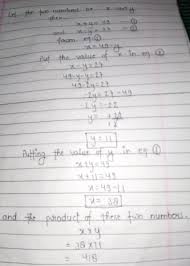 Let the two numbers be x and y
then
x + y = 49 — ①
and x - y = 27 — ②
from eq ①
x = 49 - y
Put the value of x in eq ②
x - y = 27
49 - y - y = 27
49 - 2y = 27
-2y = 27 - 49
-2y = -22
y =
y = 11
Putting the value of y in eq ①
x + y = 49
x + 11 = 49
x = 49 - 11
x = 38
and the product of these two numbers
x x y
= 38 x 11
= 418